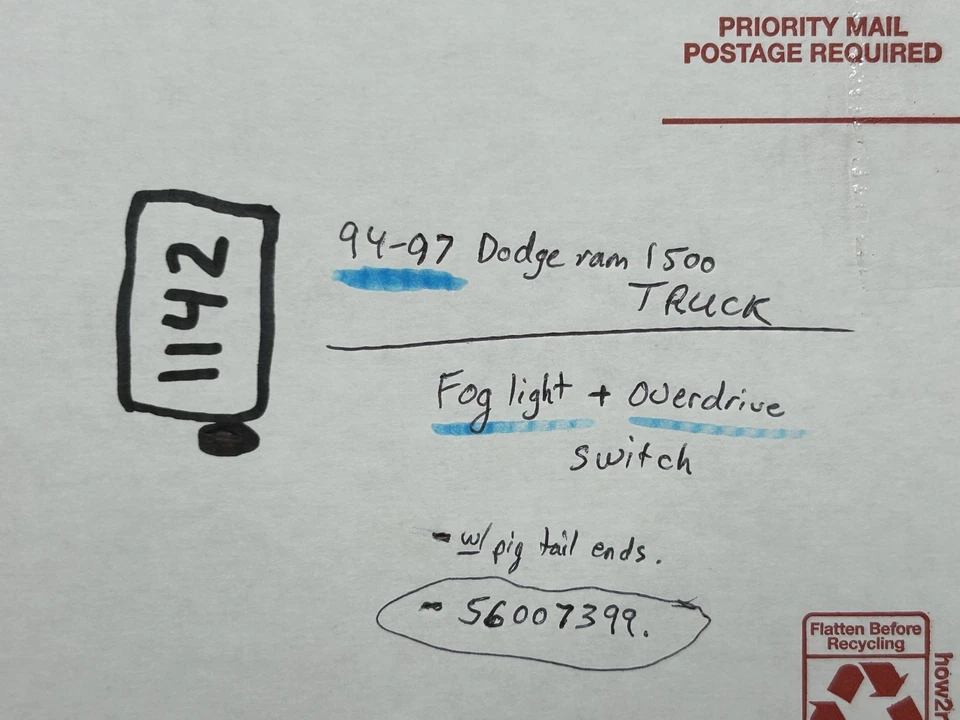 PRIORITY MAIL
POSTAGE REQUIRED
1142
94-97 Dodge ram 1500
TRUCK
Fog light + Overdrive
switch
- w/ pig tail ends.
- 56007399.
Flatten Before
Recycling
how2r